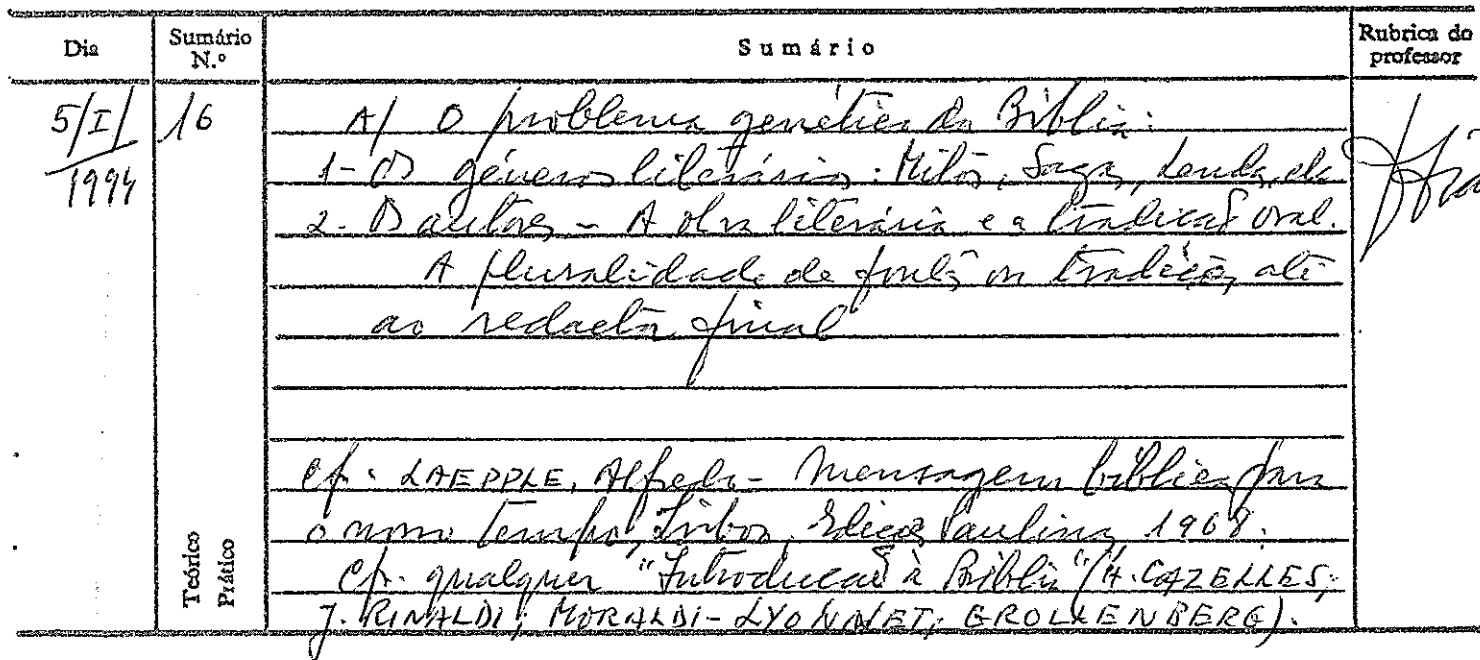 Dia Sumário N.º Sumário Rubrica do professor
5/I/1994 16 A/ O problema genético da Bíblia:
1- Os géneros literários: Mitos, Sagas, Lendas, etc
2- Os autores - A obra literária e a tradição oral.
A pluralidade de fontes ou tradições, até
ao redactor final
Cf. LAEPPLE, Alfredo - Mensagem bíblica para
o nosso tempo, Lisboa, Edições Paulinas, 1968.
Cf. qualquer "Introdução à Bíblia" (H. CAZELLES;
J. RINALDI; MORALDI-LYONNET; GROLLENBERG).
Teórico
Prático